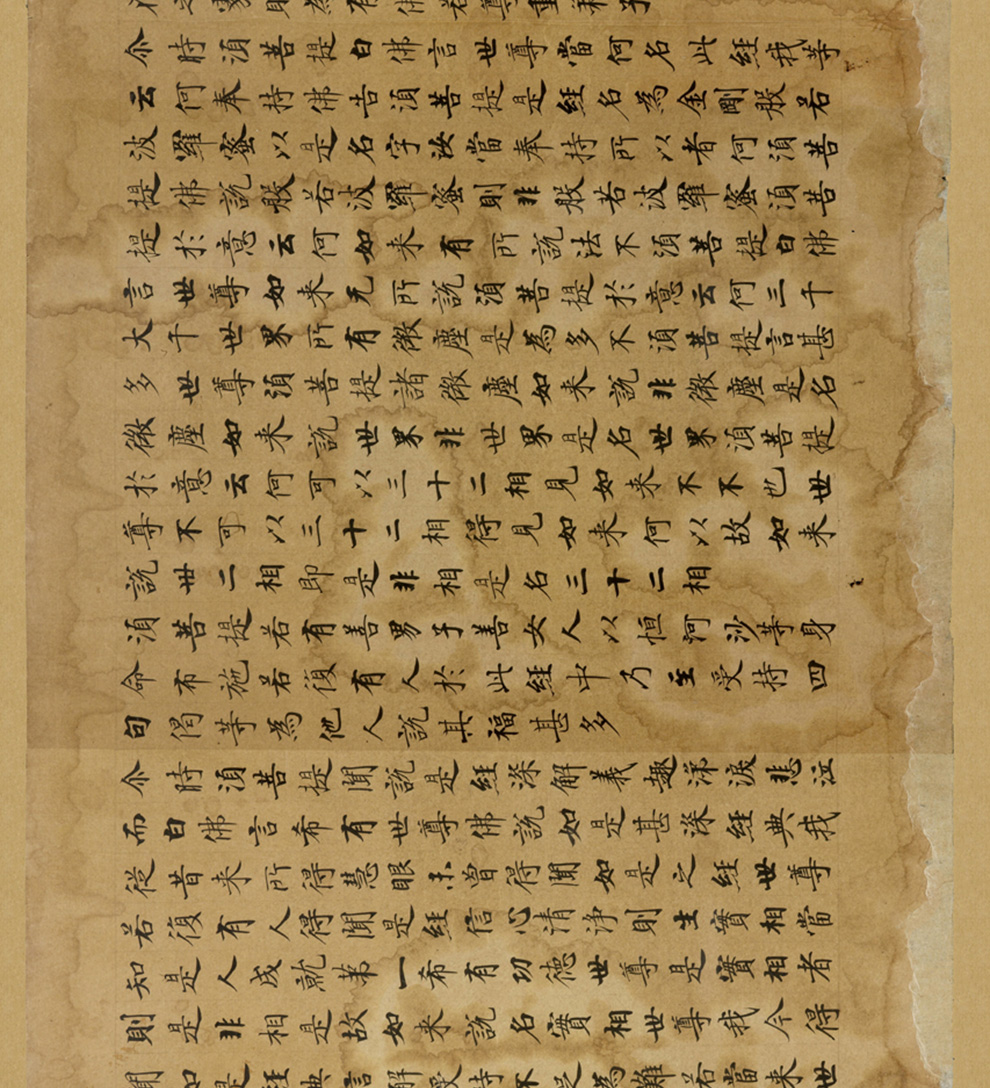 之處則為有佛若尊重弟子
尒時湏菩提白佛言世尊當何名此經我等
云何奉持佛告湏菩提是經名為金剛般若
波羅蜜以是名字汝當奉持所以者何湏菩
提佛說般若波羅蜜則非般若波羅蜜湏菩
提於意云何如来有所說法不湏菩提白佛
言世尊如来无所說湏菩提於意云何三千
大千世界所有微塵是為多不湏菩提言甚
多世尊湏菩提諸微塵如来說非微塵是名
微塵如来說世界非世界是名世界湏菩提
於意云何可以三十二相見如来不不也世
尊不可以三十二相得見如来何以故如来
說卅二相即是非相是名三十二相
湏菩提若有善男子善女人以恒河沙等身
命布施若復有人於此經中乃至受持四
句偈等為他人說其福甚多
尒時湏菩提聞說是經深解義趣涕淚悲泣
而白佛言希有世尊佛說如是甚深經典我
從昔来所得慧眼未曾得聞如是之經世尊
若復有人得聞是經信心清淨則生實相當
知是人成就苐一希有功德世尊是實相者
則是非相是故如来說名實相世尊我今得
聞如是經典信解受持不足為難若當来世